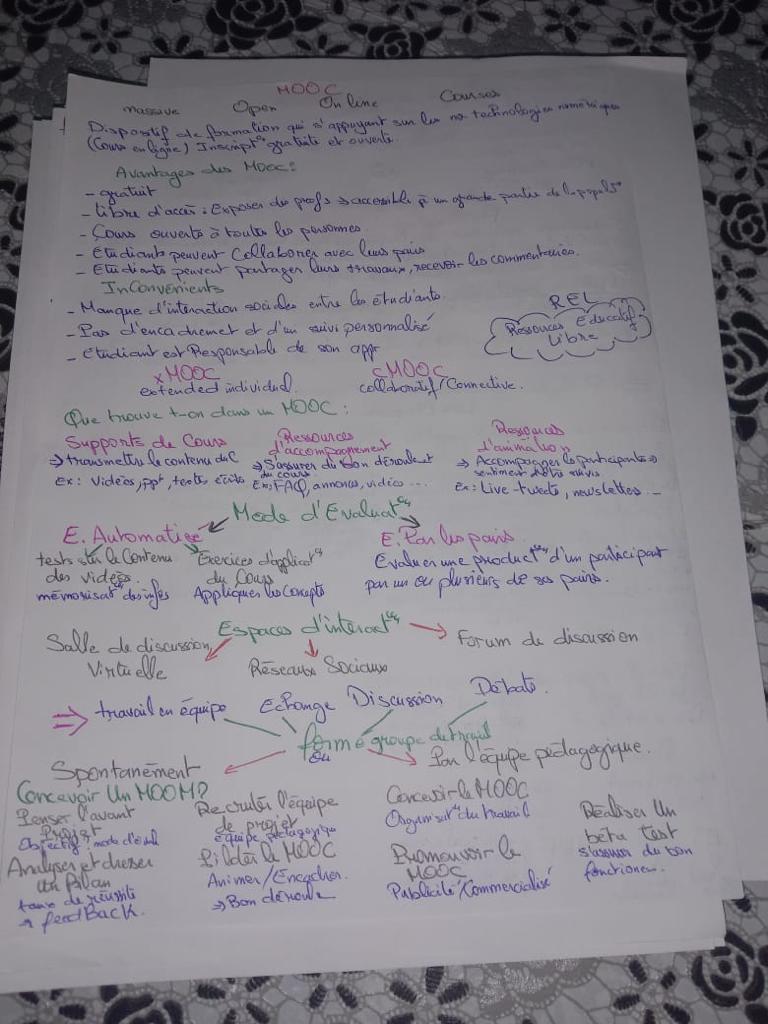 MOOC
massive Open On line Courses
Dispositif de formation qui s'appuyant sur les nv technologies numériques
(Cours en ligne) Inscript° gratuite et ouverte.
Avantages des Mooc :
- gratuit
- libre d'accès : Exposer des profs → accessible à un grande partie de la popul°
- Cours ouverts à toutes les personnes.
- Etudiants peuvent Collaborer avec leurs pairs
- Etudiants peuvent partager leurs travaux, recevoir les commentaires.
InConvénients
- Manque d'interaction sociales entre les étudiants.
- Pas d'encadrement et d'un suivi personnalisé
- étudiant est Responsable de son appr
REL
Ressources Educatif
Libre
xMOOC cMOOC
extended individuel. collaboratif/Connective.
Que trouve t-on dans un MOOC :
Supports de Cours
⇒ transmettre le contenu du C
Ex : Vidéos, ppt, texte, écrits
Ressources
d'accompagnement
⇒ S'assurer du bon déroulent
du cours.
Ex : FAQ, annonces, vidéo ...
Ressources
d'animation
⇒ Accompagner les participants ⇒
sentiment d'être suivis
Ex : Live-tweets, newsletters ...
Mode d'Evaluat°
E. Automatisé E. Par les pairs
tests sur le Contenu
des vidéos.
mémorisat° des infos
Exercices d'applicat°
du Cours
Appliquer les Concepts
Evaluer une product° d'un participant
par un ou plusieurs de ses pairs.
Espaces d'interact°
Salle de discussion
Virtuelle
Réseaux Sociaux
Forum de discussion
⇒ travail en équipe Echange Discussion Débats.
forme groupe de travail
ou
Spontanément Par l'équipe pédagogique.
Concevoir Un MOOM?
Penser l'avant
Projet
Objectif, mode d'éval
Recruter l'équipe
de projet
équipe pédagogiqu
Concevoir le MOOC
Organisat° du travail
Réaliser Un
bêta test
s'assurer du bon
fonctionem.
Analyser et dresser
Un bilan
taux de réussite
→ feedBack.
Piloter le MOOC
Animer/Encadrer.
⇒ Bon déroule
Promouvoir le
MOOC
Publicité/Commercialisé